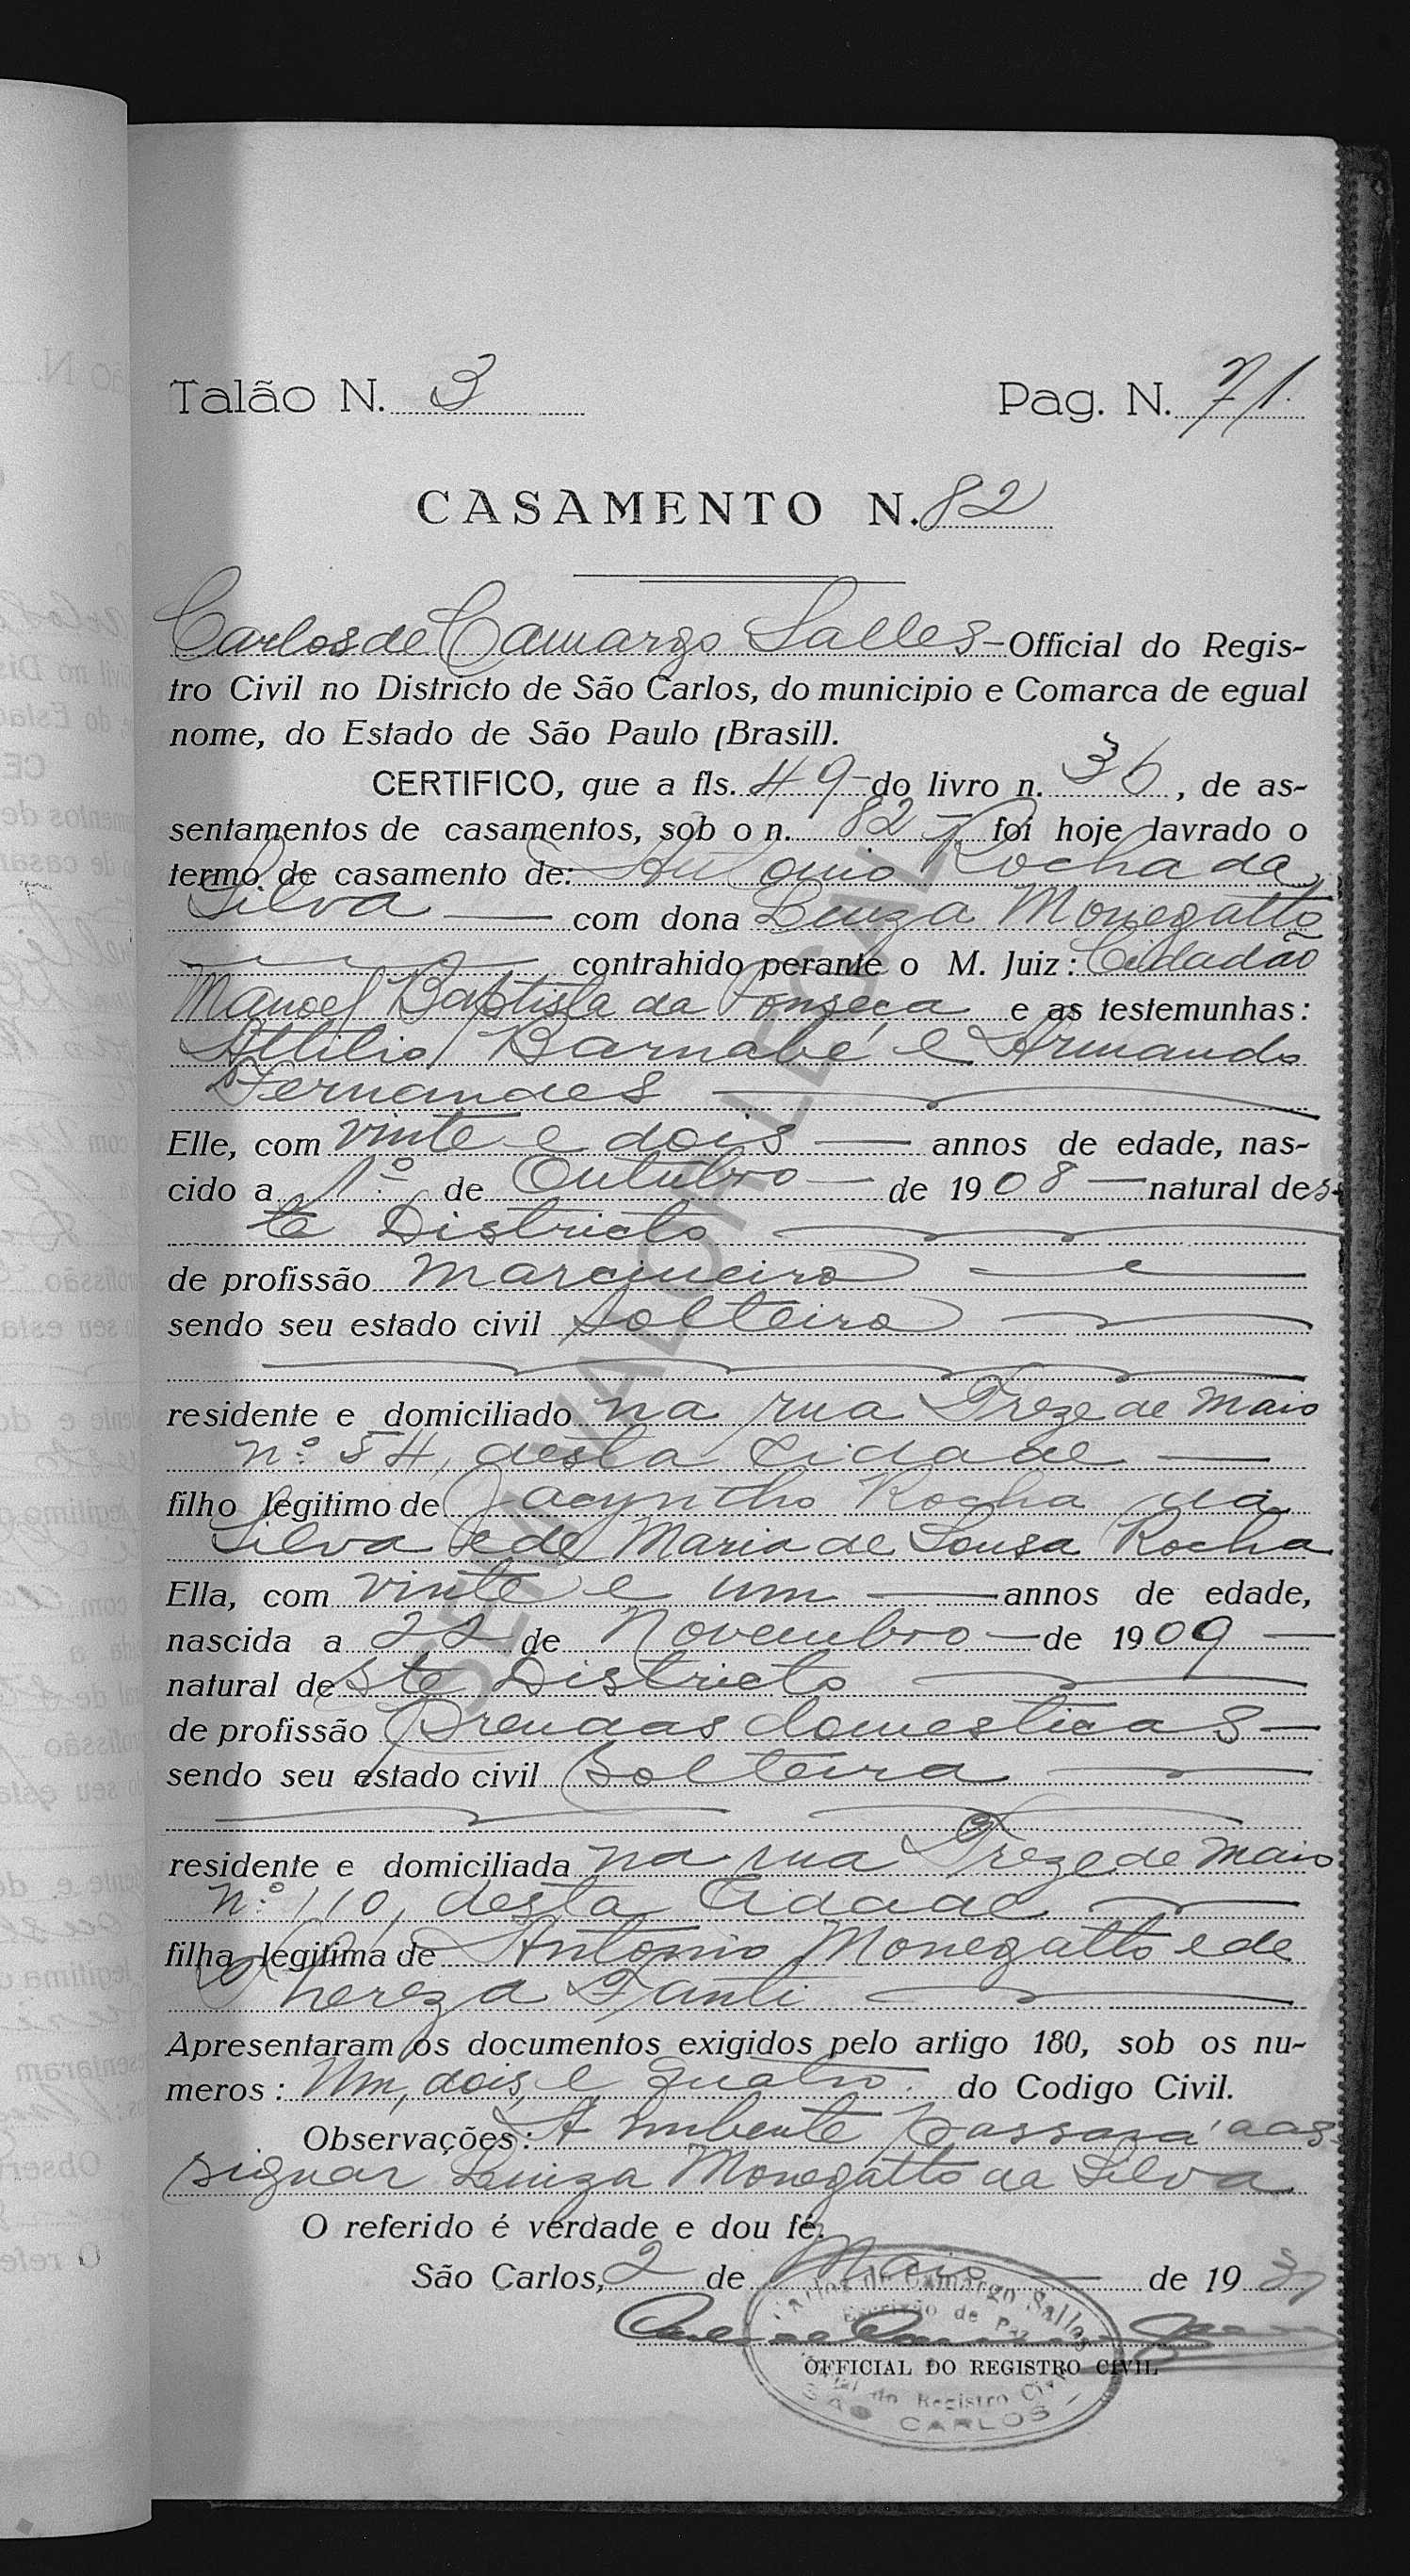 Talão N. 3 Pag. N. 71.
CASAMENTO N. 82
Carlos de Camargo Salles - Official do Regis-
tro Civil no Districto de São Carlos, do municipio e Comarca de egual
nome, do Estado de São Paulo (Brasil).
CERTIFICO, que a fls. 49 - do livro n. 36, de as-
sentamentos de casamentos, sob o n. 82 - foi hoje lavrado o
termo de casamento de: Antonio Rocha da
Silva — com dona Luiza Monegatto
contrahido perante o M. Juiz: Cidadão
Manoel Baptista da Fonseca e as testemunhas:
Attilio Barnabé e Armando
Fernandes
Elle, com vinte e dois — annos de edade, nas-
cido a 1º de Outubro — de 1908 — natural des-
te Districto
de profissão marcineiro
sendo seu estado civil solteiro
residente e domiciliado na rua Treze de Maio
nº. 54, desta cidade —
filho legitimo de Jacyntho Rocha da
Silva e de Maria de Sousa Rocha
Ella, com vinte e um — annos de edade,
nascida a 22 de Novembro — de 1909 —
natural deste Districto
de profissão Prendas domesticas —
sendo seu estado civil Solteira
residente e domiciliada na rua Treze de Maio
nº. 110, desta Cidade
filha legitima de Antonio Monegatto e de
Thereza Fanti
Apresentaram os documentos exigidos pelo artigo 180, sob os nu-
meros: Um, dois, e quatro. do Codigo Civil.
Observações: A nubente passará a as-
signar Luiza Monegatto da Silva
O referido é verdade e dou fé.
São Carlos, 2 de Maio — de 1931
OFFICIAL DO REGISTRO CIVIL
Carlos de Camargo Salles
Escrivão de Paz
do Registro Civil
SÃO CARLOS
SEM VALOR LEGAL